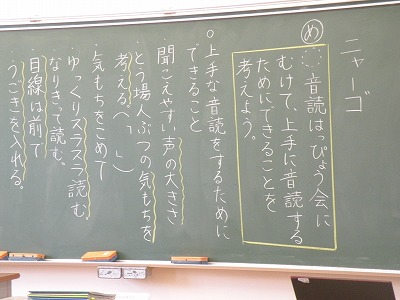 ニャーゴ
め
音読はっぴょう会に
むけて、上手に音読する
ためにできることを
考えよう。
○上手な音読をするために
できること
聞こえやすい声の大きさ
とう場人ぶつの気もちを
考える。(「」)
気もちをこめて
ゆっくりスラスラ読む。
なりきって読む。
目線は前で
うごきを入れる。